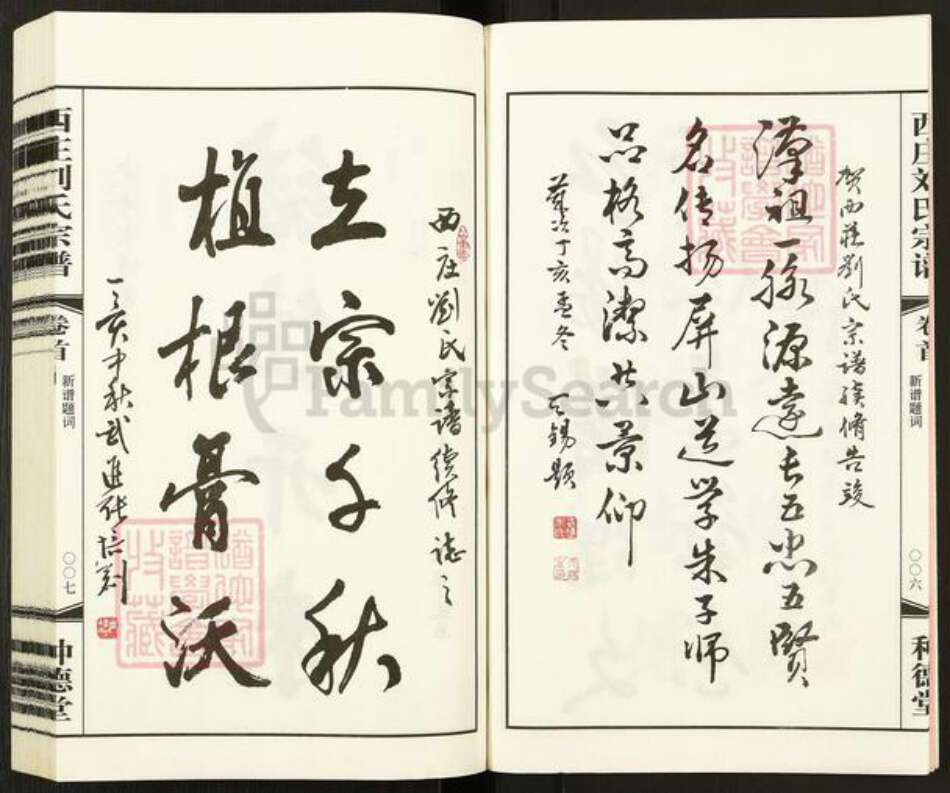 西庄刘氏宗谱
卷首
新谱题词
〇〇六
种德堂
贺西莊劉氏宗譜续脩告竣
漢祖一脉源遠长五忠五賢
名传扬屏山道学朱子师
品格高潔共景仰
歲次丁亥孟冬
锡題
西庄劉氏宗譜续修誌之
立宗千秋
植根膏沃
丁亥中秋武進張培
西庄刘氏宗谱
卷首
新谱题词
〇〇七
种德堂
FamilySearch